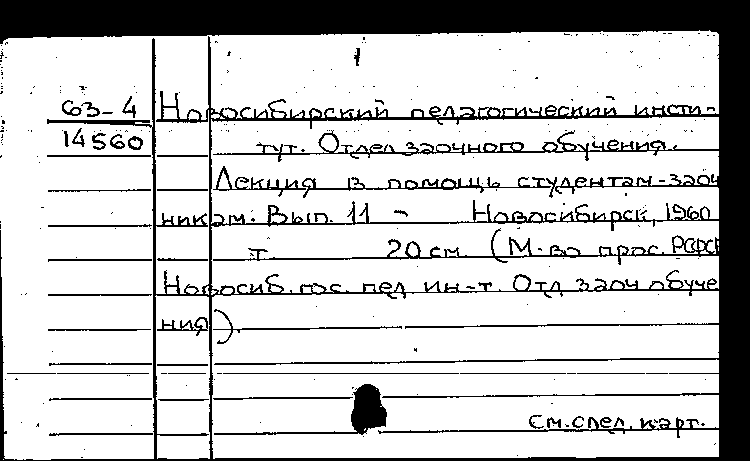 1
63-4 Новосибирский педагогический инсти-
14560 тут. Отдел заочного обучения.
Лекция в помощь студентам-заоч
никам. Вып. 11 - Новосибирск, 1960
т 20 см. (М-во прос. РСФСР
Новосиб. гос. пед ин-т. Отд заоч обуче
ния).
См. след. карт.